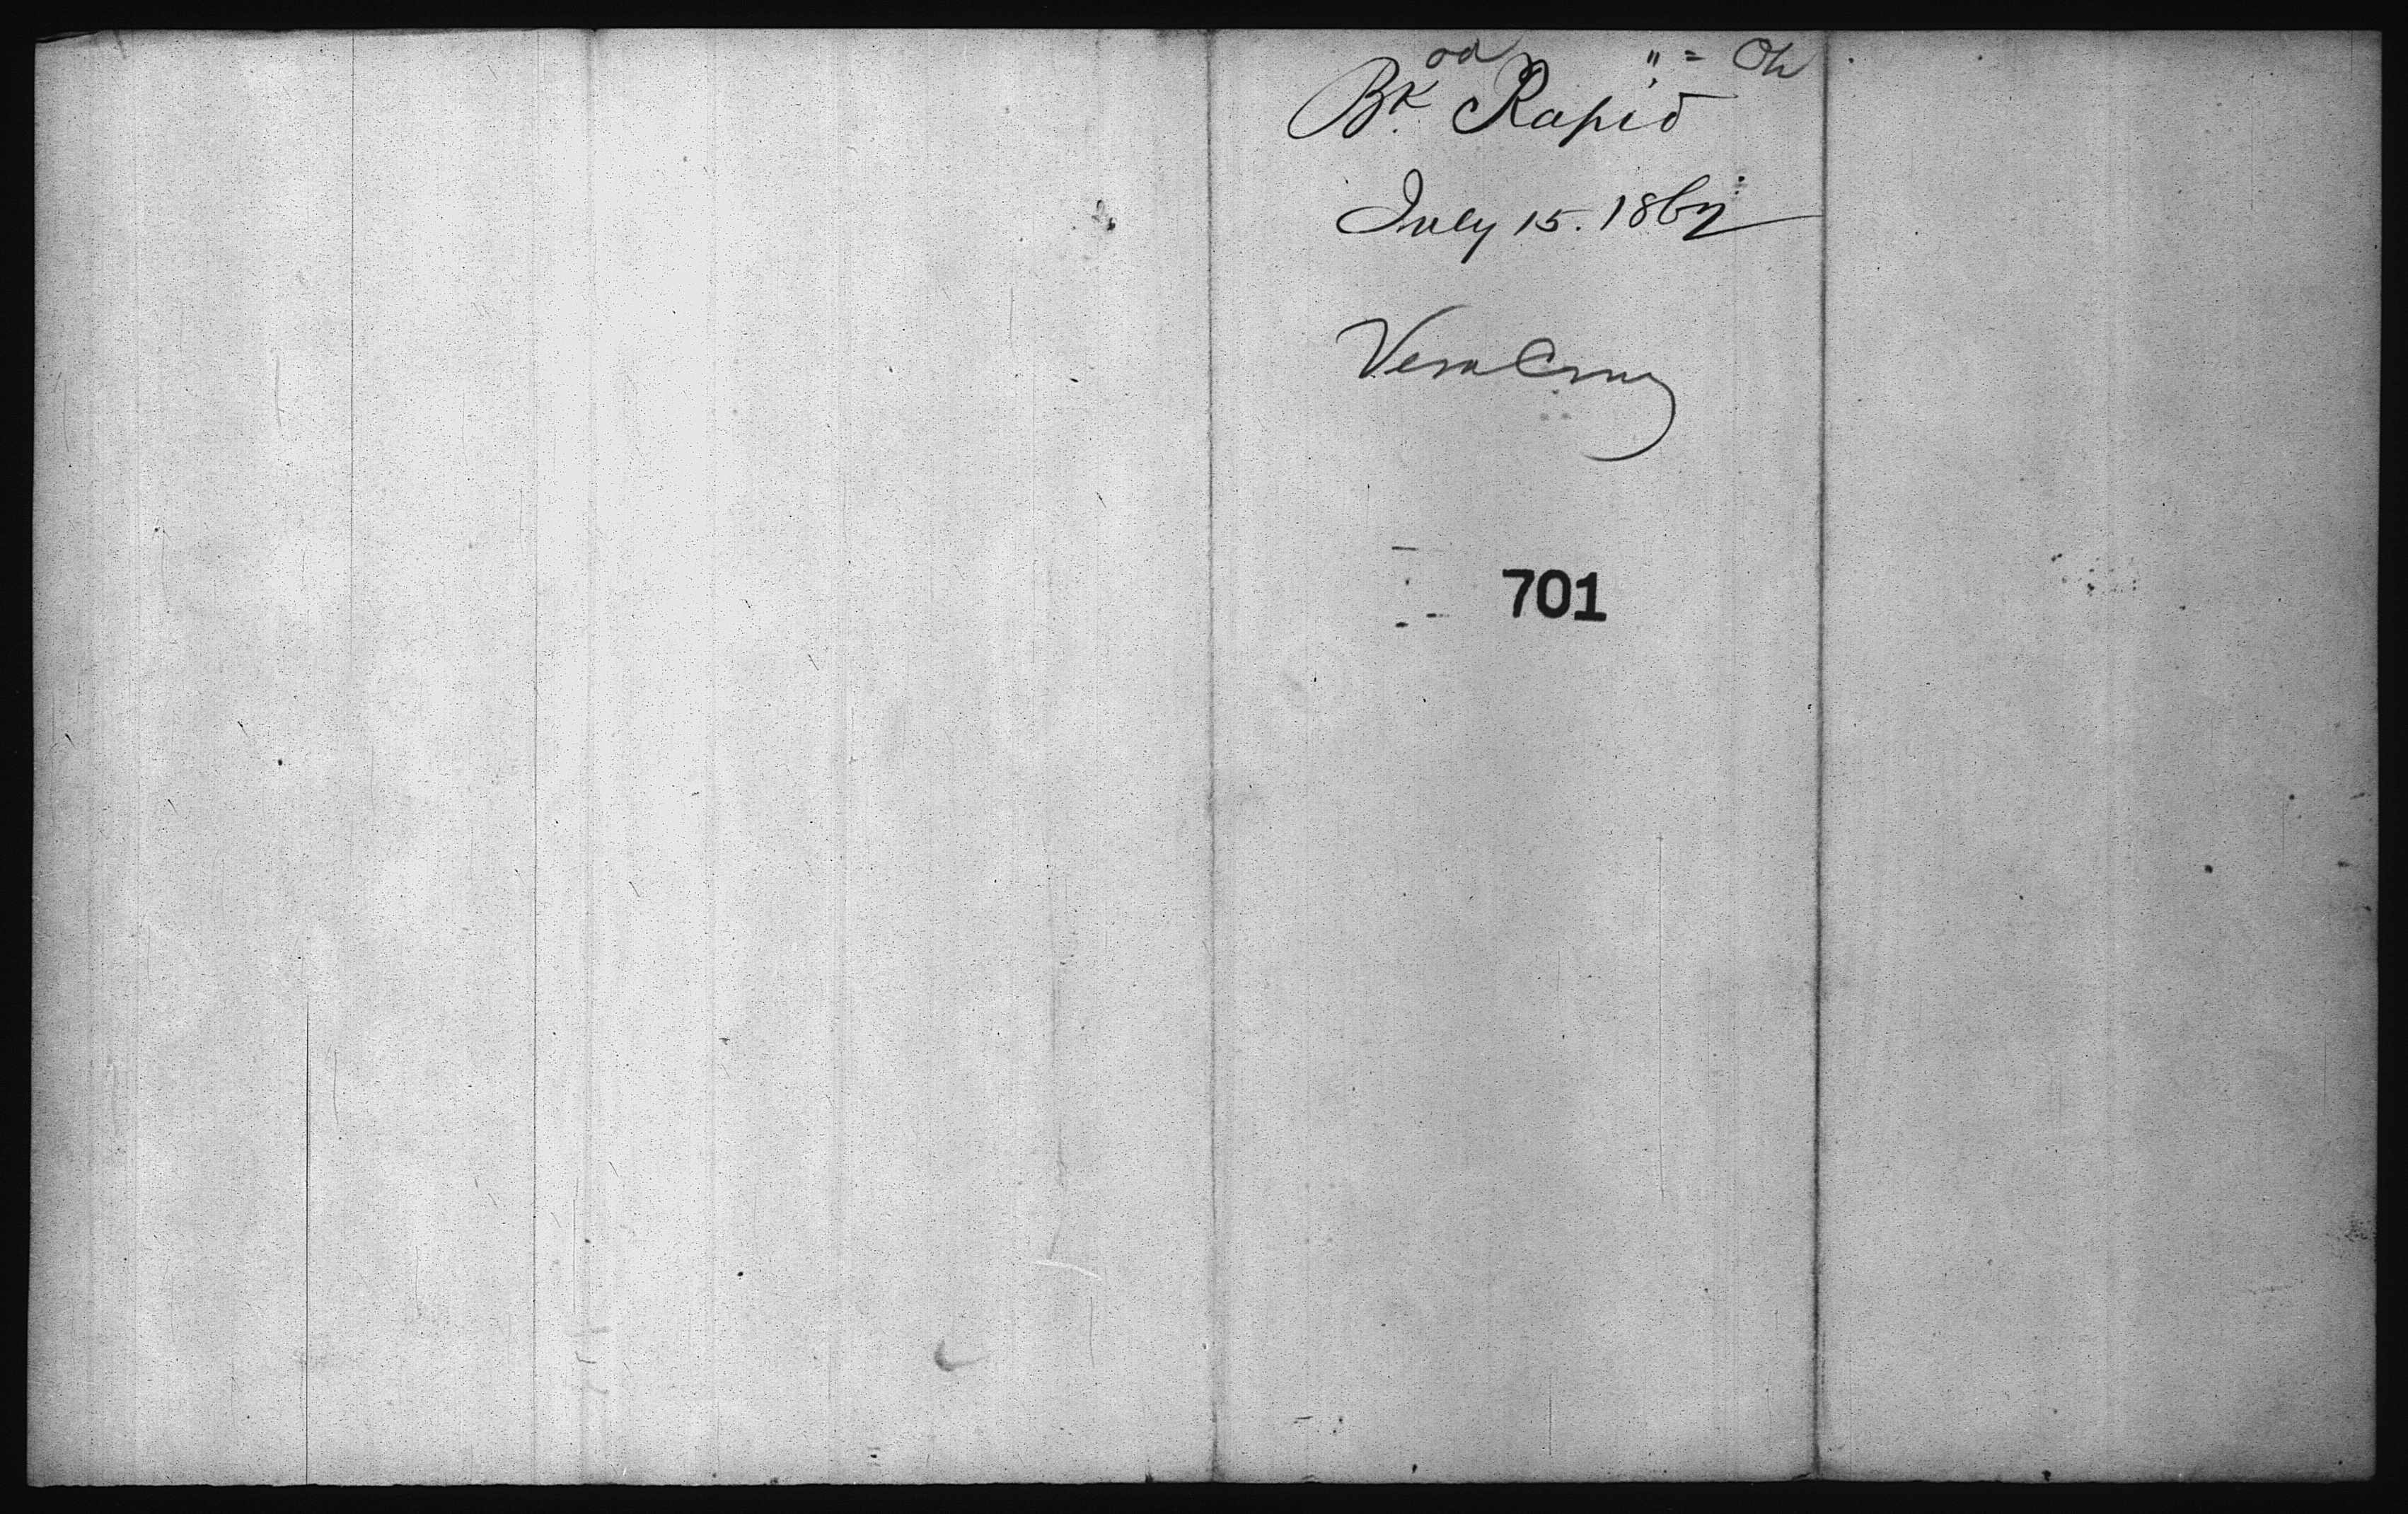 Bk. Rapid
July 15. 1867
Vera Cruz
701